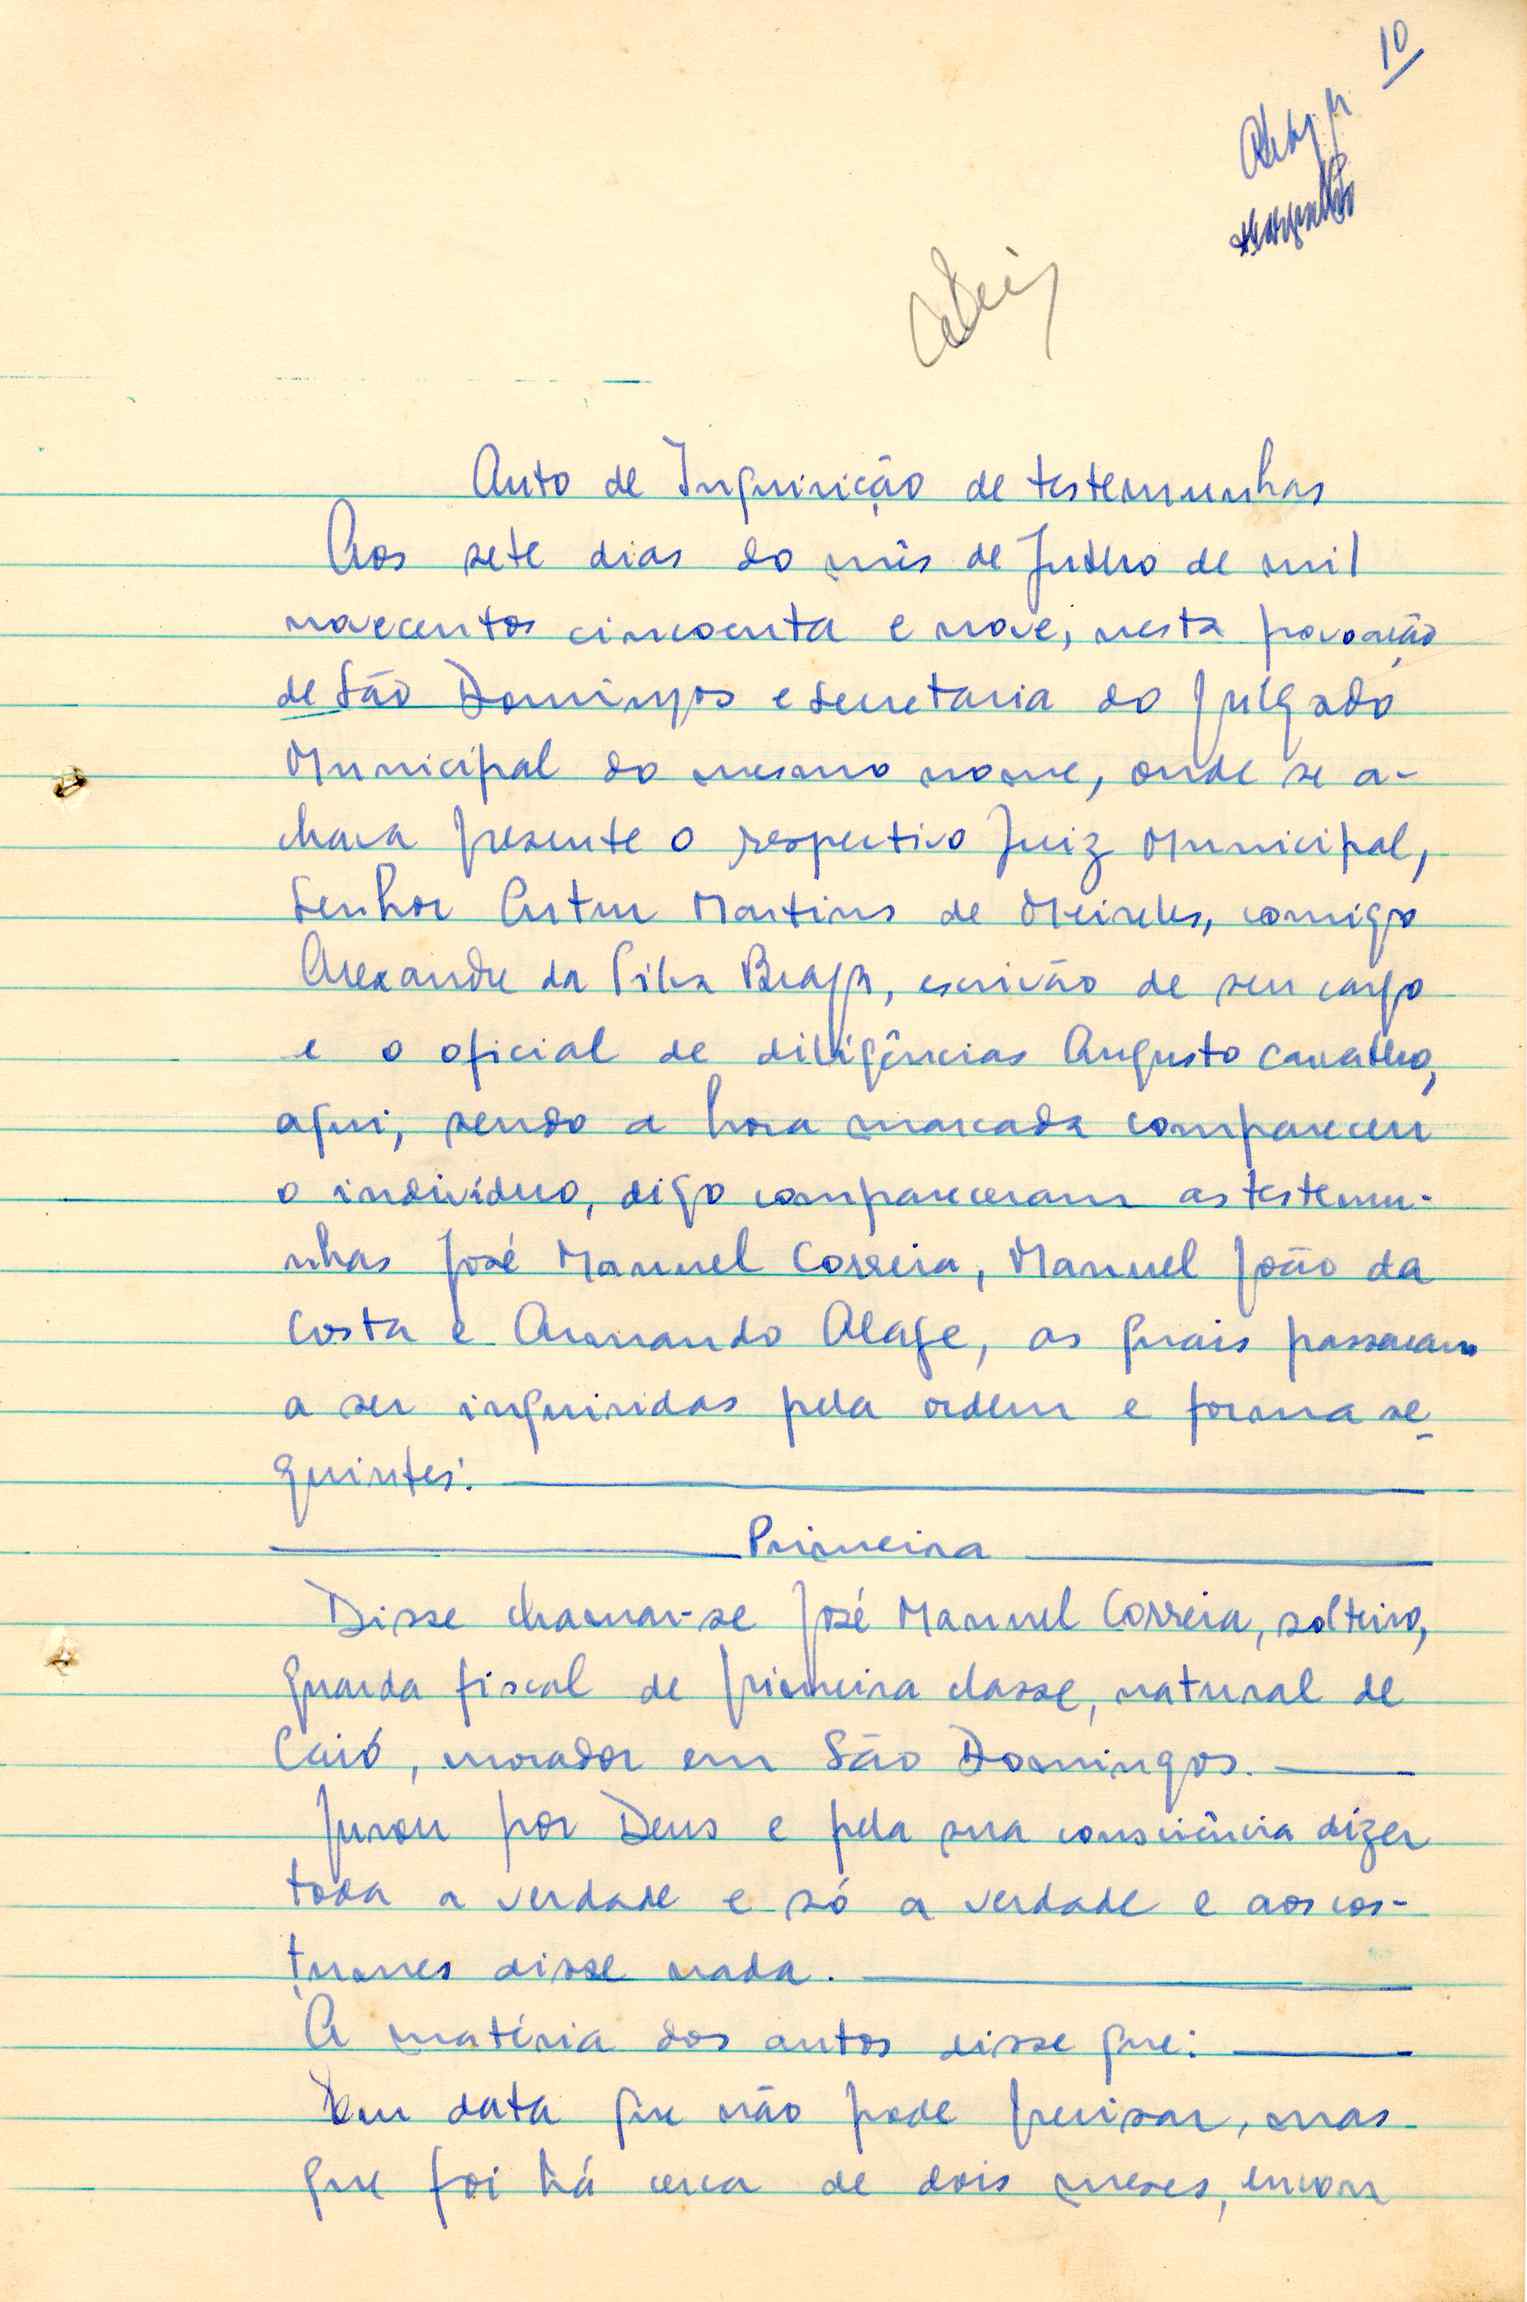 10
Auto de Inquirição de testemunhas
Aos sete dias do mês de Julho de mil
novecentos cincoenta e nove, nesta povoação
de São Domingos e secretaria do Julgado
Municipal do mesmo nome, onde se a-
chava presente o respectivo Juiz Municipal,
Senhor Artur Martins de Meireles, comigo
Alexandre da Silva Braga, escrivão de seu cargo
e o oficial de diligências Augusto Carvalho,
aqui, sendo a hora marcada compareceu
o indivíduo, digo compareceram as testemu-
nhas José Manuel Correia, Manuel João da
Costa e Armando Alage, as quais passaram
a ser inquiridas pela ordem e forma se-
guintes:
Primeira
Disse chamar-se José Manuel Correia, solteiro,
guarda fiscal de primeira classe, natural de
Caió, morador em São Domingos.
Jurou por Deus e pela sua consciência dizer
toda a verdade e só a verdade e aos cos-
tumes disse nada.
A matéria dos autos disse que:
Em data que não pode precisar, mas
que foi há cerca de dois meses, encon